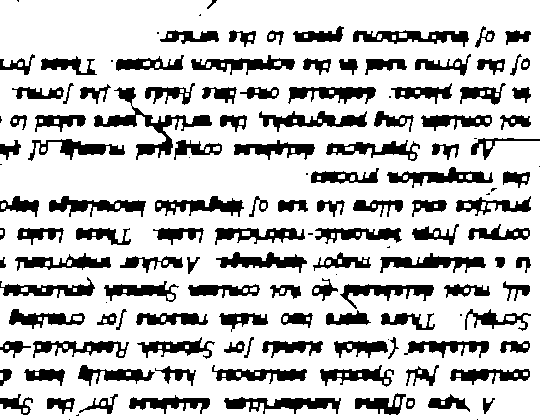 A new offline handwritten database for the Sp
contains full Spanish sentences, has recently been d
ous database (which stands for Spanish Restricted-do
Script). There were two main reasons for creating
all, most databases do not contain Spanish sentences,
is a widespread major language. Another important r
corpus from semantic-restricted tasks. These tasks a
practice and allow the use of linguistic knowledge beyo
the recognition process.
As the Spartacus database consisted mainly of sho
not contain long paragraphs, the writers were asked to c
in fixed places: dedicated one-line fields in the forms.
of the forms used in the acquisition process. These for
set of instructions given to the writer.